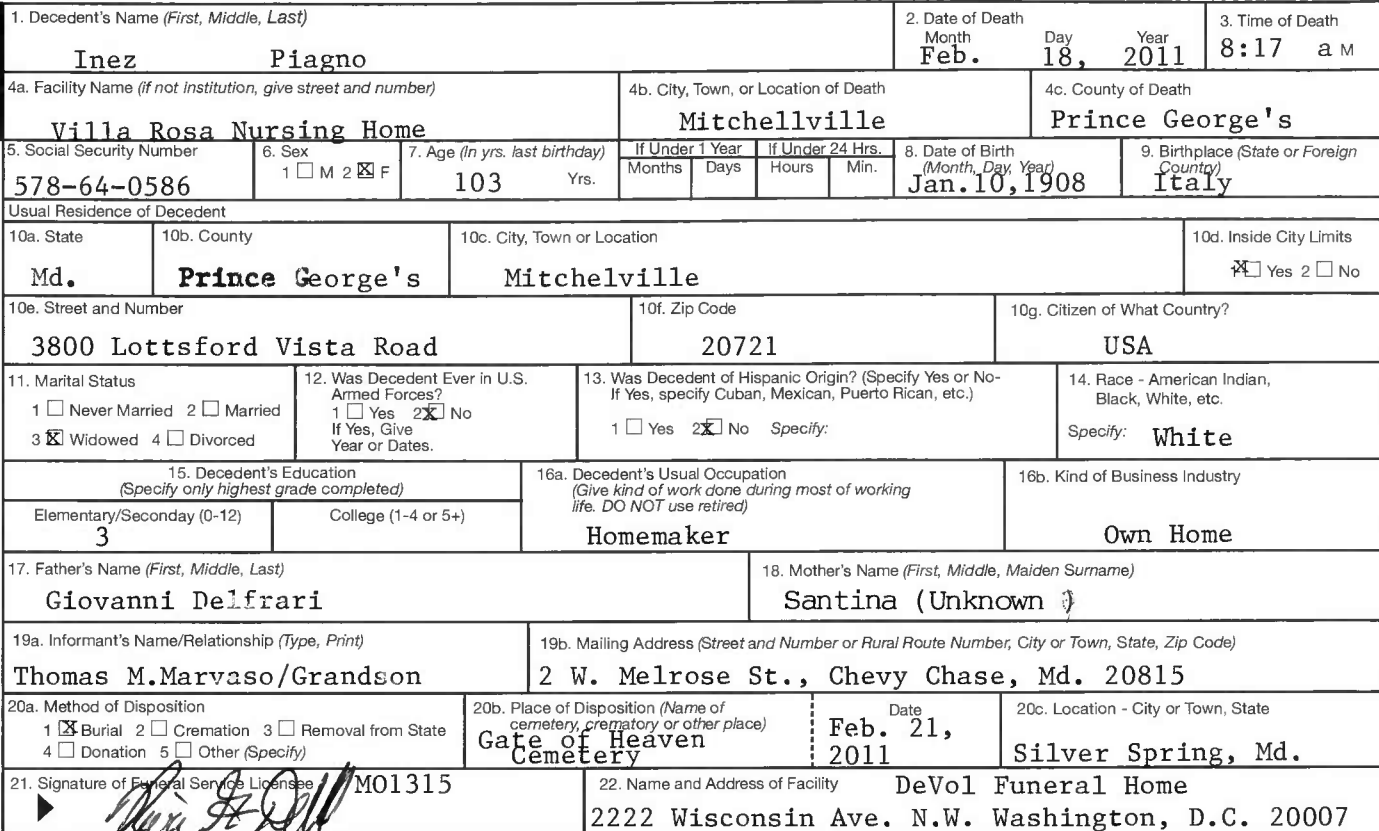 1. Decedent's Name (First, Middle, Last)
Inez Piagno
2. Date of Death
Month Day Year
Feb. 18, 2011
3. Time of Death
8:17 a M
4a. Facility Name (if not institution, give street and number)
Villa Rosa Nursing Home
4b. City, Town, or Location of Death
Mitchellville
4c. County of Death
Prince George's
5. Social Security Number
578-64-0586
6. Sex
1 ☐ M 2 ☒ F
7. Age (In yrs. last birthday)
103 Yrs.
If Under 1 Year
Months Days
If Under 24 Hrs.
Hours Min.
8. Date of Birth
(Month, Day, Year)
Jan.10,1908
9. Birthplace (State or Foreign
Country)
Italy
Usual Residence of Decedent
10a. State
Md.
10b. County
Prince George's
10c. City, Town or Location
Mitchelville
10d. Inside City Limits
1 ☒ Yes 2 ☐ No
10e. Street and Number
3800 Lottsford Vista Road
10f. Zip Code
20721
10g. Citizen of What Country?
USA
11. Marital Status
1 ☐ Never Married 2 ☐ Married
3 ☒ Widowed 4 ☐ Divorced
12. Was Decedent Ever in U.S.
Armed Forces?
1 ☐ Yes 2 ☒ No
If Yes, Give
Year or Dates.
13. Was Decedent of Hispanic Origin? (Specify Yes or No-
If Yes, specify Cuban, Mexican, Puerto Rican, etc.)
1 ☐ Yes 2 ☒ No Specify:
14. Race - American Indian,
Black, White, etc.
Specify: White
15. Decedent's Education
(Specify only highest grade completed)
Elementary/Seconday (0-12)
3
College (1-4 or 5+)
16a. Decedent's Usual Occupation
(Give kind of work done during most of working
life. DO NOT use retired)
Homemaker
16b. Kind of Business Industry
Own Home
17. Father's Name (First, Middle, Last)
Giovanni Delfrari
18. Mother's Name (First, Middle, Maiden Surname)
Santina (Unknown )
19a. Informant's Name/Relationship (Type, Print)
Thomas M.Marvaso/Grandson
19b. Mailing Address (Street and Number or Rural Route Number, City or Town, State, Zip Code)
2 W. Melrose St., Chevy Chase, Md. 20815
20a. Method of Disposition
1 ☒ Burial 2 ☐ Cremation 3 ☐ Removal from State
4 ☐ Donation 5 ☐ Other (Specify)
20b. Place of Disposition (Name of
cemetery, crematory or other place)
Gate of Heaven
Cemetery
Date
Feb. 21,
2011
20c. Location - City or Town, State
Silver Spring, Md.
21. Signature of Funeral Service Licensee
MO1315
22. Name and Address of Facility
DeVol Funeral Home
2222 Wisconsin Ave. N.W. Washington, D.C. 20007